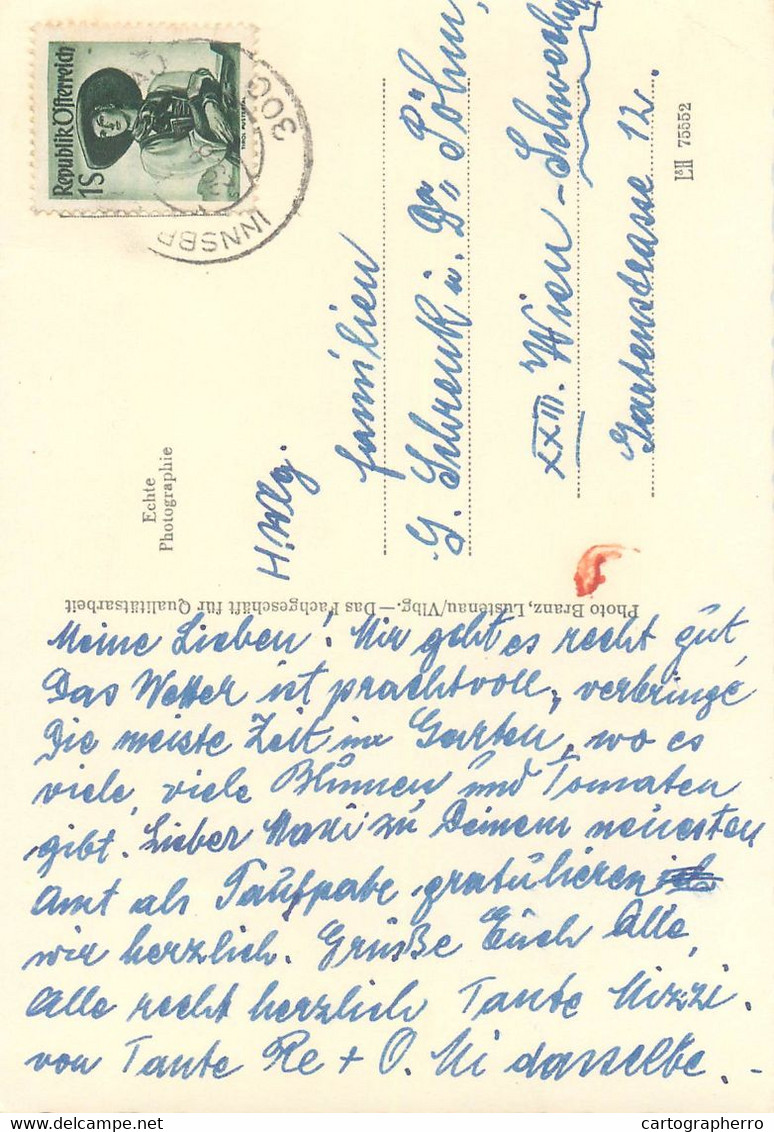 Republik Österreich
1S
INNSBR
Echte
Photographie
L&H 75552
H.Wlg.
Familien
G. Schrenk u. Dr. Pöhm,
XXIII. Wien-Schwechat
Gartenstrasse 12.
Photo Branz, Lustenau/Vlbg. — Das Fachgeschäft für Qualitätsarbeit
Meine Lieben! Mir geht es recht gut,
Das Wetter ist prachtvoll, verbringe
Die meiste Zeit im Garten, wo es
viele, viele Blumen und Tomaten
gibt. Lieber Maxi zu Deinem neuesten
Amt als Taufpate gratulieren
wir herzlich. Grüße Euch Alle,
Alle recht herzlich Tante Mizzi.
von Tante Re + O. Mi dasselbe. -
cartographerro